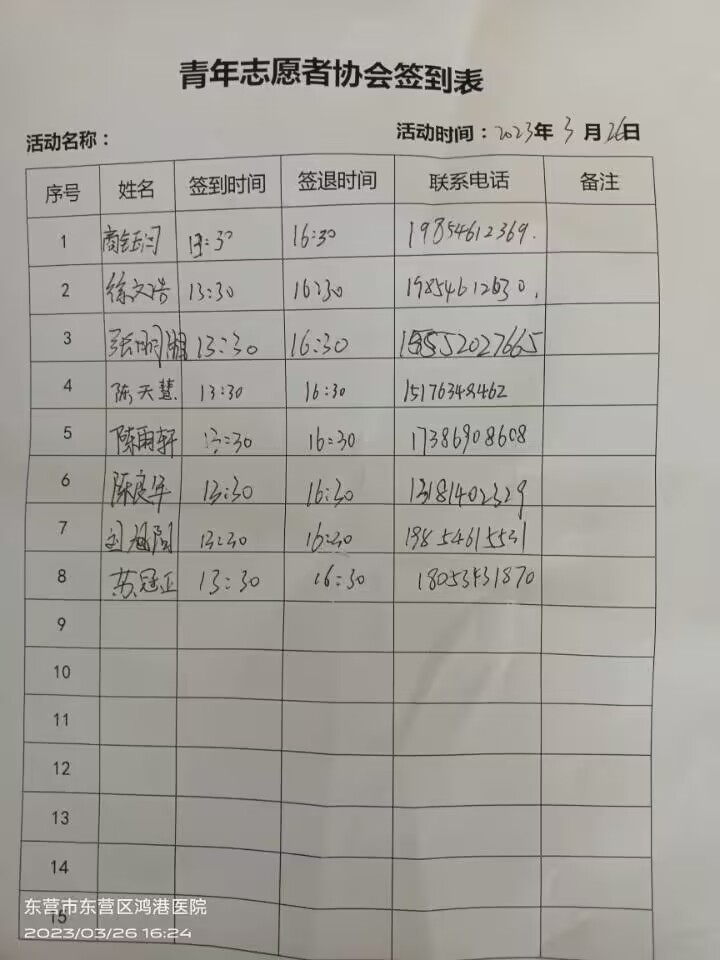 青年志愿者协会签到表
活动名称： 活动时间：2023年3月26日
序号 姓名 签到时间 签退时间 联系电话 备注
1 13:30 16:30 19854612369.
2 徐文浩 13:30 16:30 19854612630.
3 13:30 16:30
4 陈天慧 13:30 16:30 15176348462
5 陈雨轩 13:30 16:30 17386908608
6 13:30 16:30 13181402329
7 13:30 16:30 19854615531
8 苏冠亚 13:30 16:30
9
10
11
12
13
14
15
东营市东营区鸿港医院
2023/03/26 16:24